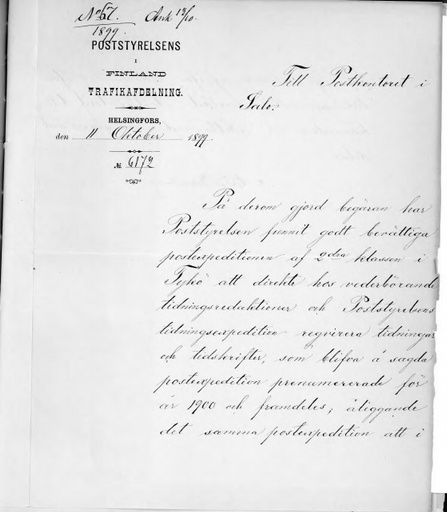 No 67. Ank 13/10.
1899.
POSTSTYRELSENS
I
FINLAND
TRAFIKAFDELNING.
HELSINGFORS,
den 11 Oktober 1899.
№ 6172
Till Postkontoret i
Salo.
På derom gjord begäran har
Poststyrelsen funnit godt berättiga
postexpeditionen af 2dra klassen i
Tykö att direkte hos vederbörande
tidningsredaktioner och Poststyrelsens
tidningsexpedition reqvirera tidningar
och tidskrifter, som blifva å sagda
postexpedition prenumererade för
år 1900 och framdeles, åliggande
det samma postexpedition att i